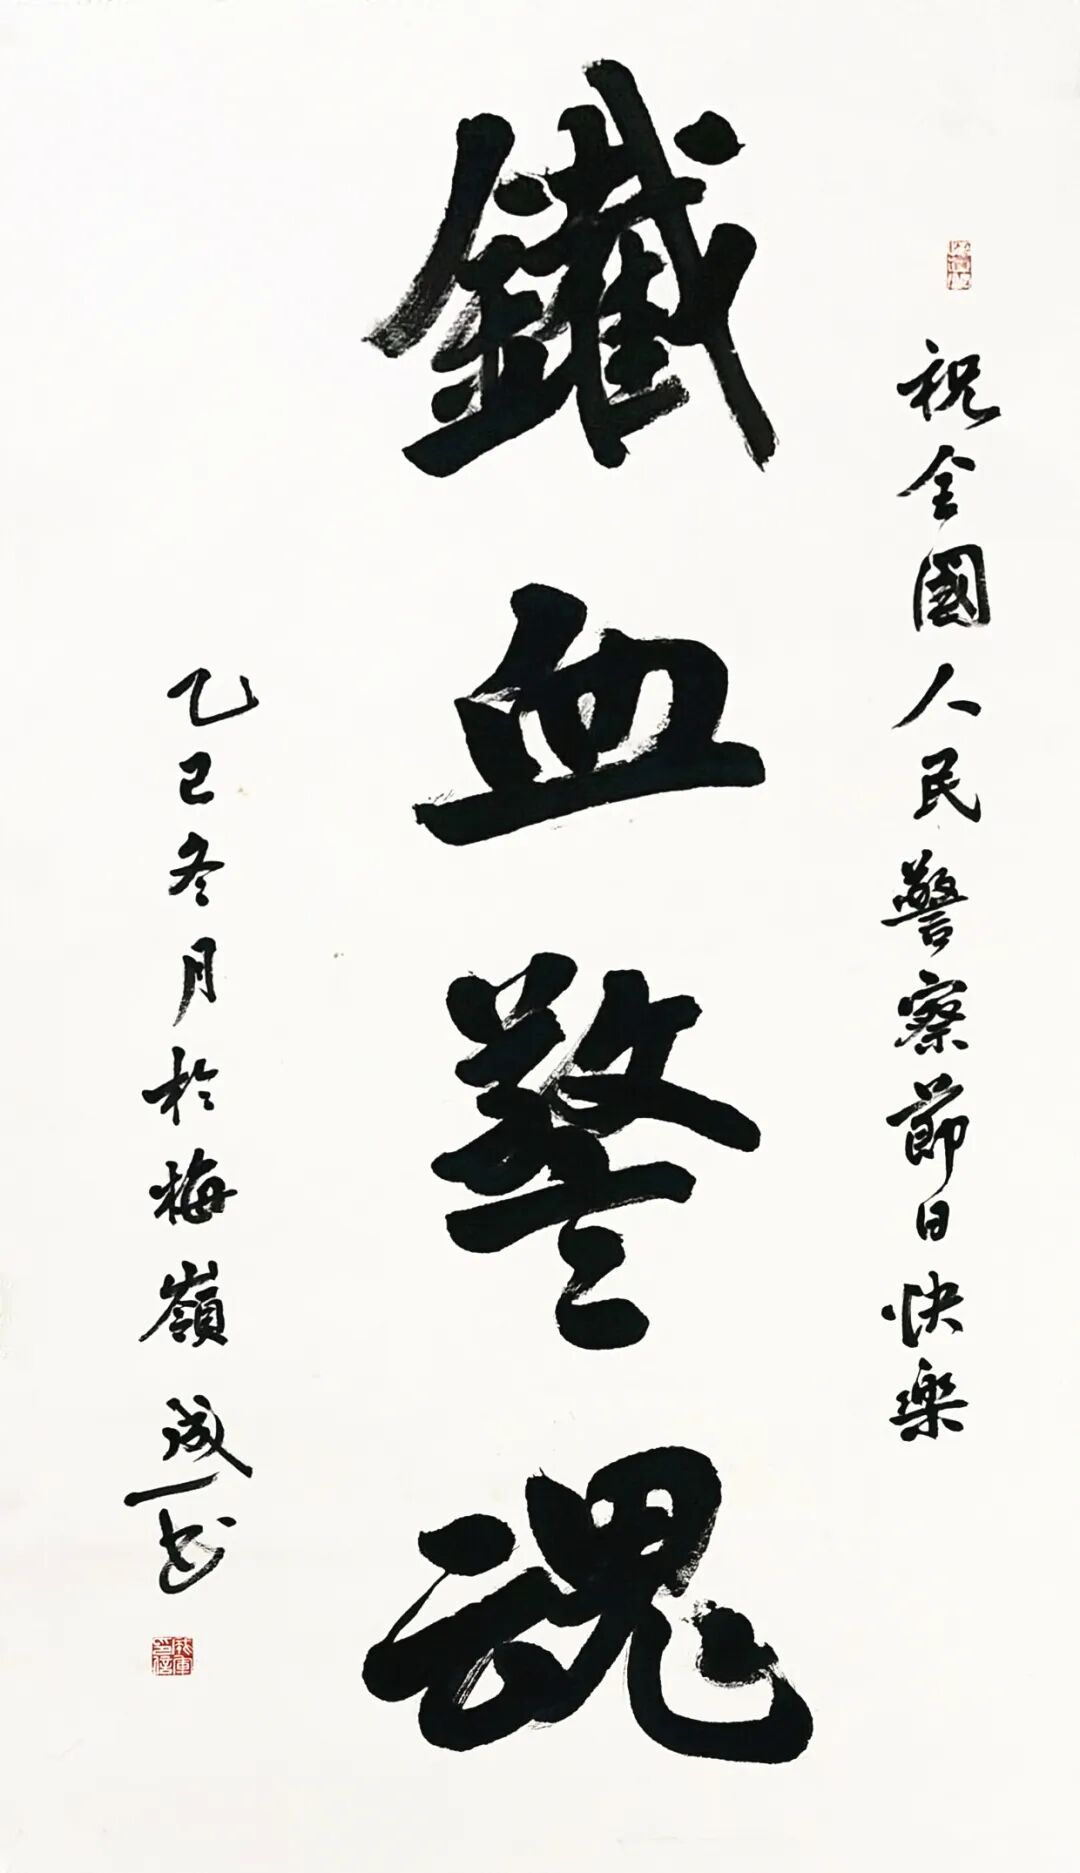 祝全國人民警察節日快樂
鐵血警魂
乙巳冬月於梅嶺 成一书